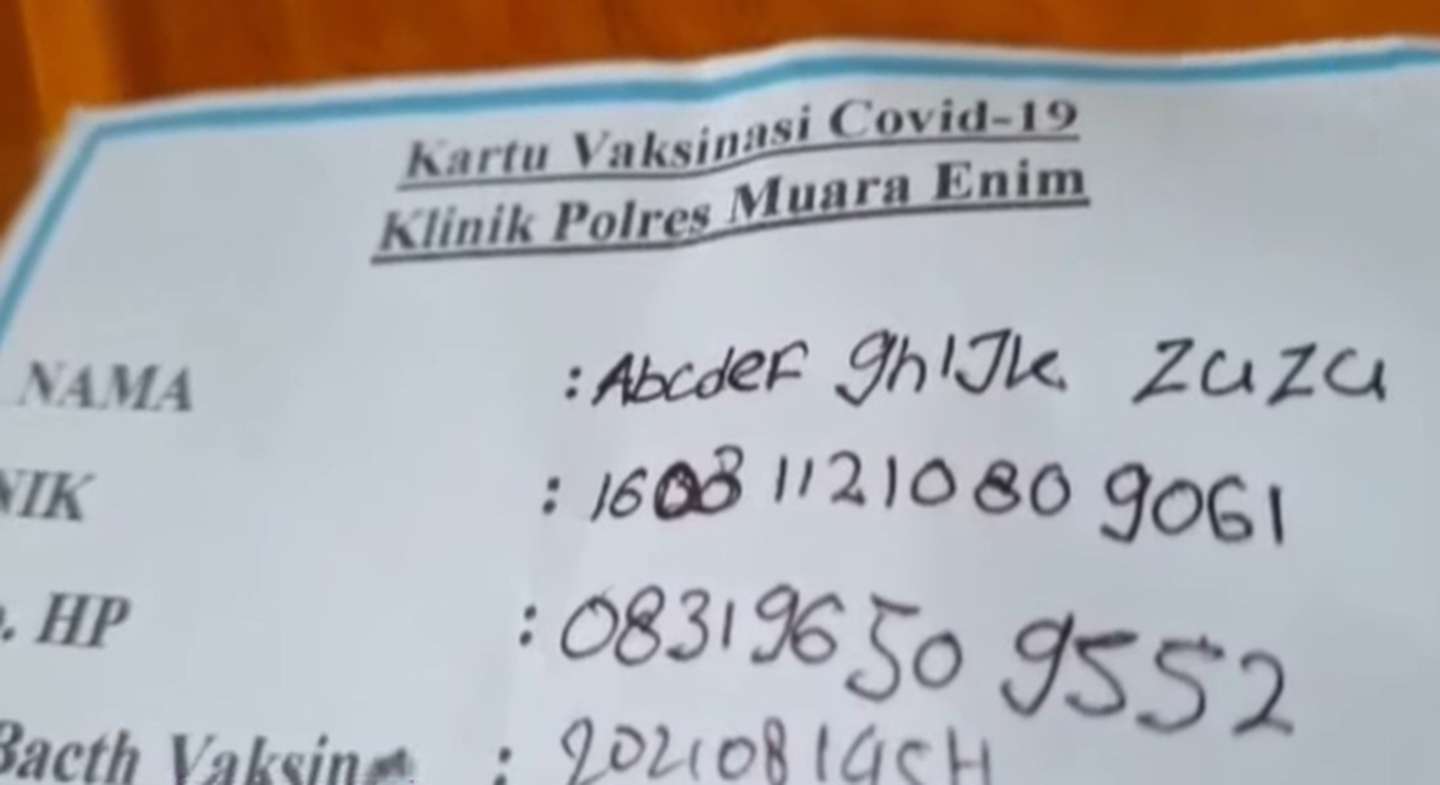 Kartu Vaksinasi Covid-19
Klinik Polres Muara Enim
NAMA : Abcdef ghIJk. ZuZu
NIK : 160311210809061
. HP : 083196509552
Bacth Vaksin : 202108